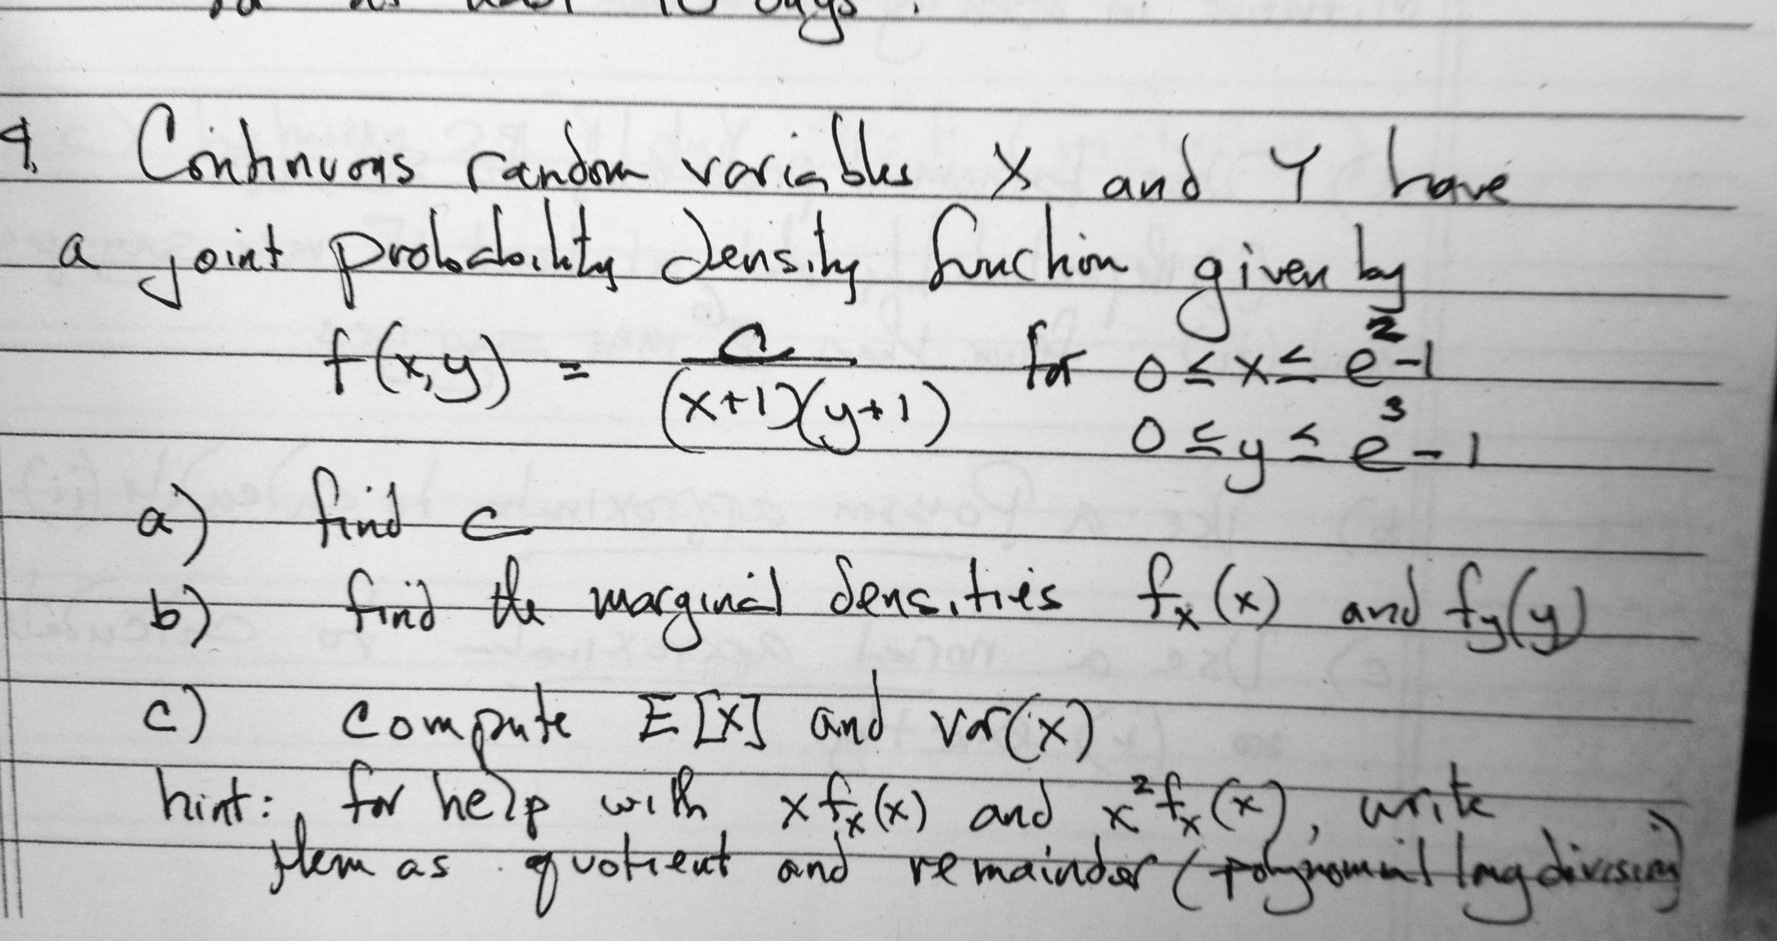 10 days.
9. Continuous random variables X and Y have
a joint probability density function given by
f(x,y) = c/((x+1)(y+1)) for 0 ≤ x ≤ e²-1
0 ≤ y ≤ e³-1
a) find c
b) find the marginal densities fx(x) and fy(y)
c) compute E[X] and var(x)
hint: for help with x fx(x) and x² fx(x), write
them as quotient and remainder (polynomial long division)